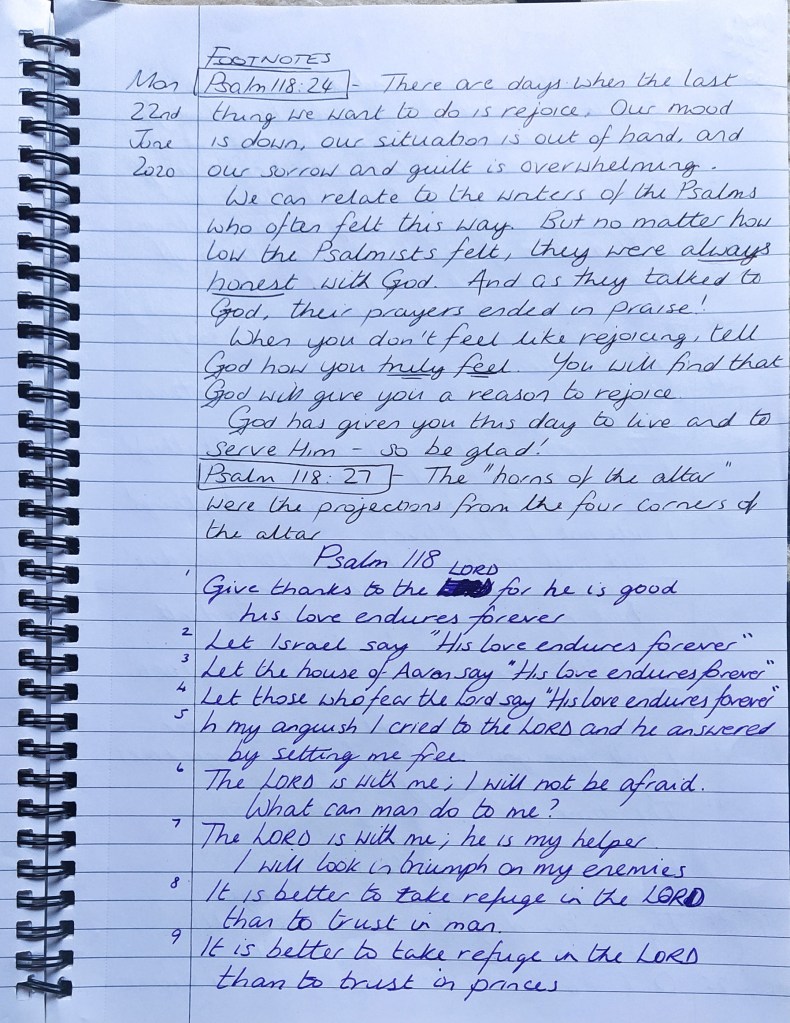 FOOTNOTES
Mon Psalm 118:24 - There are days when the last
22nd thing we want to do is rejoice. Our mood
June is down, our situation is out of hand, and
2020 our sorrow and guilt is overwhelming.
We can relate to the writers of the Psalms
who often felt this way. But no matter how
low the Psalmists felt, they were always
honest with God. And as they talked to
God, their prayers ended in praise!
When you don't feel like rejoicing, tell
God how you truly feel. You will find that
God will give you a reason to rejoice.
God has given you this day to live and to
serve Him - so be glad!
Psalm 118:27 - The "horns of the altar"
were the projections from the four corners of
the altar
Psalm 118
LORD
1 Give thanks to the for he is good
his love endures forever
2 Let Israel say "His love endures forever"
3 Let the house of Aaron say "His love endures forever"
4 Let those who fear the Lord say "His love endures forever"
5 In my anguish I cried to the LORD and he answered
by setting me free
6 The LORD is with me; I will not be afraid.
What can man do to me?
7 The LORD is with me; he is my helper.
I will look in triumph on my enemies
8 It is better to take refuge in the LORD
than to trust in man.
9 It is better to take refuge in the LORD
than to trust in princes